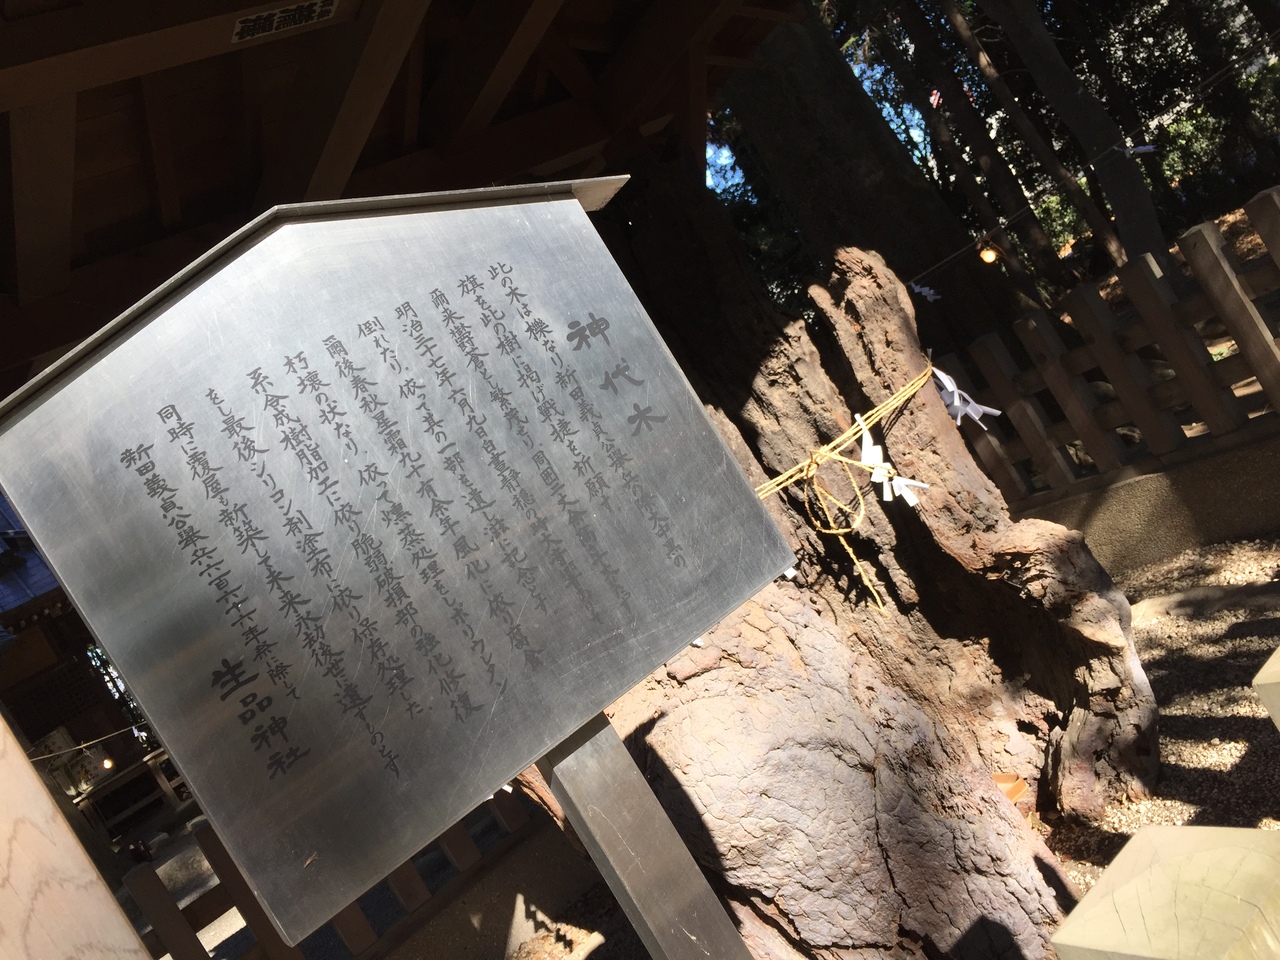 神代木
此の木は櫟なり新田義貞公挙兵の際大中黒の
旗を此の樹に掲げ戦捷を祈願す
爾来鬱蒼と繁茂し周囲二丈余
明治三十七年六月九日白昼静穏の時大音響
倒れたり、依って其の一部を遺し法に記念とす
爾後春秋星霜九十有余年風化に依り腐食
朽壊の状なり、依って燻蒸処理をしポリウレタン
系合成樹脂加工に依り脆弱破損部の強化修復
をし最後シリコン剤塗布に依り保存処理した、
同時に覆屋も新築して未来永劫後世に遺すものとす
新田義貞公挙兵六百六十六年祭に際して
生品神社